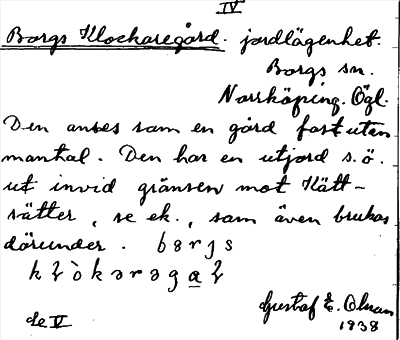 IV
Borgs Klockaregård. jordlägenhet.
Borgs sn.
Norrköping. Ögl.
Den anses som en gård fast utan
mantal. Den har en utjord s.ö.
ut invid gränsen mot Kätt-
sätter, se ek., som även brukas
därunder. bərjs
de IV
Gustaf E. Olson
1938